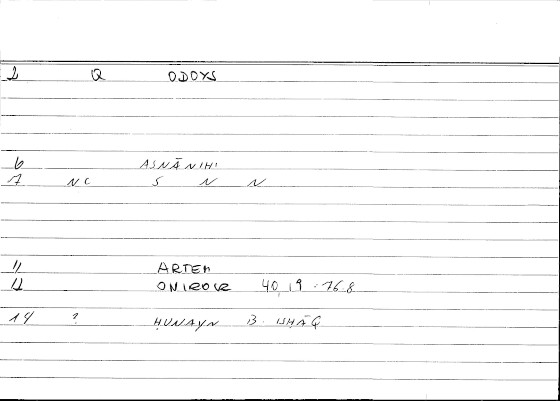 2 Q ODOYS
6 ASNĀNIHI
7 NC S N N
11 ARTEM
12 ONIROCR 40,19 - 768
14 ? ḤUNAYN B. ISḤĀQ